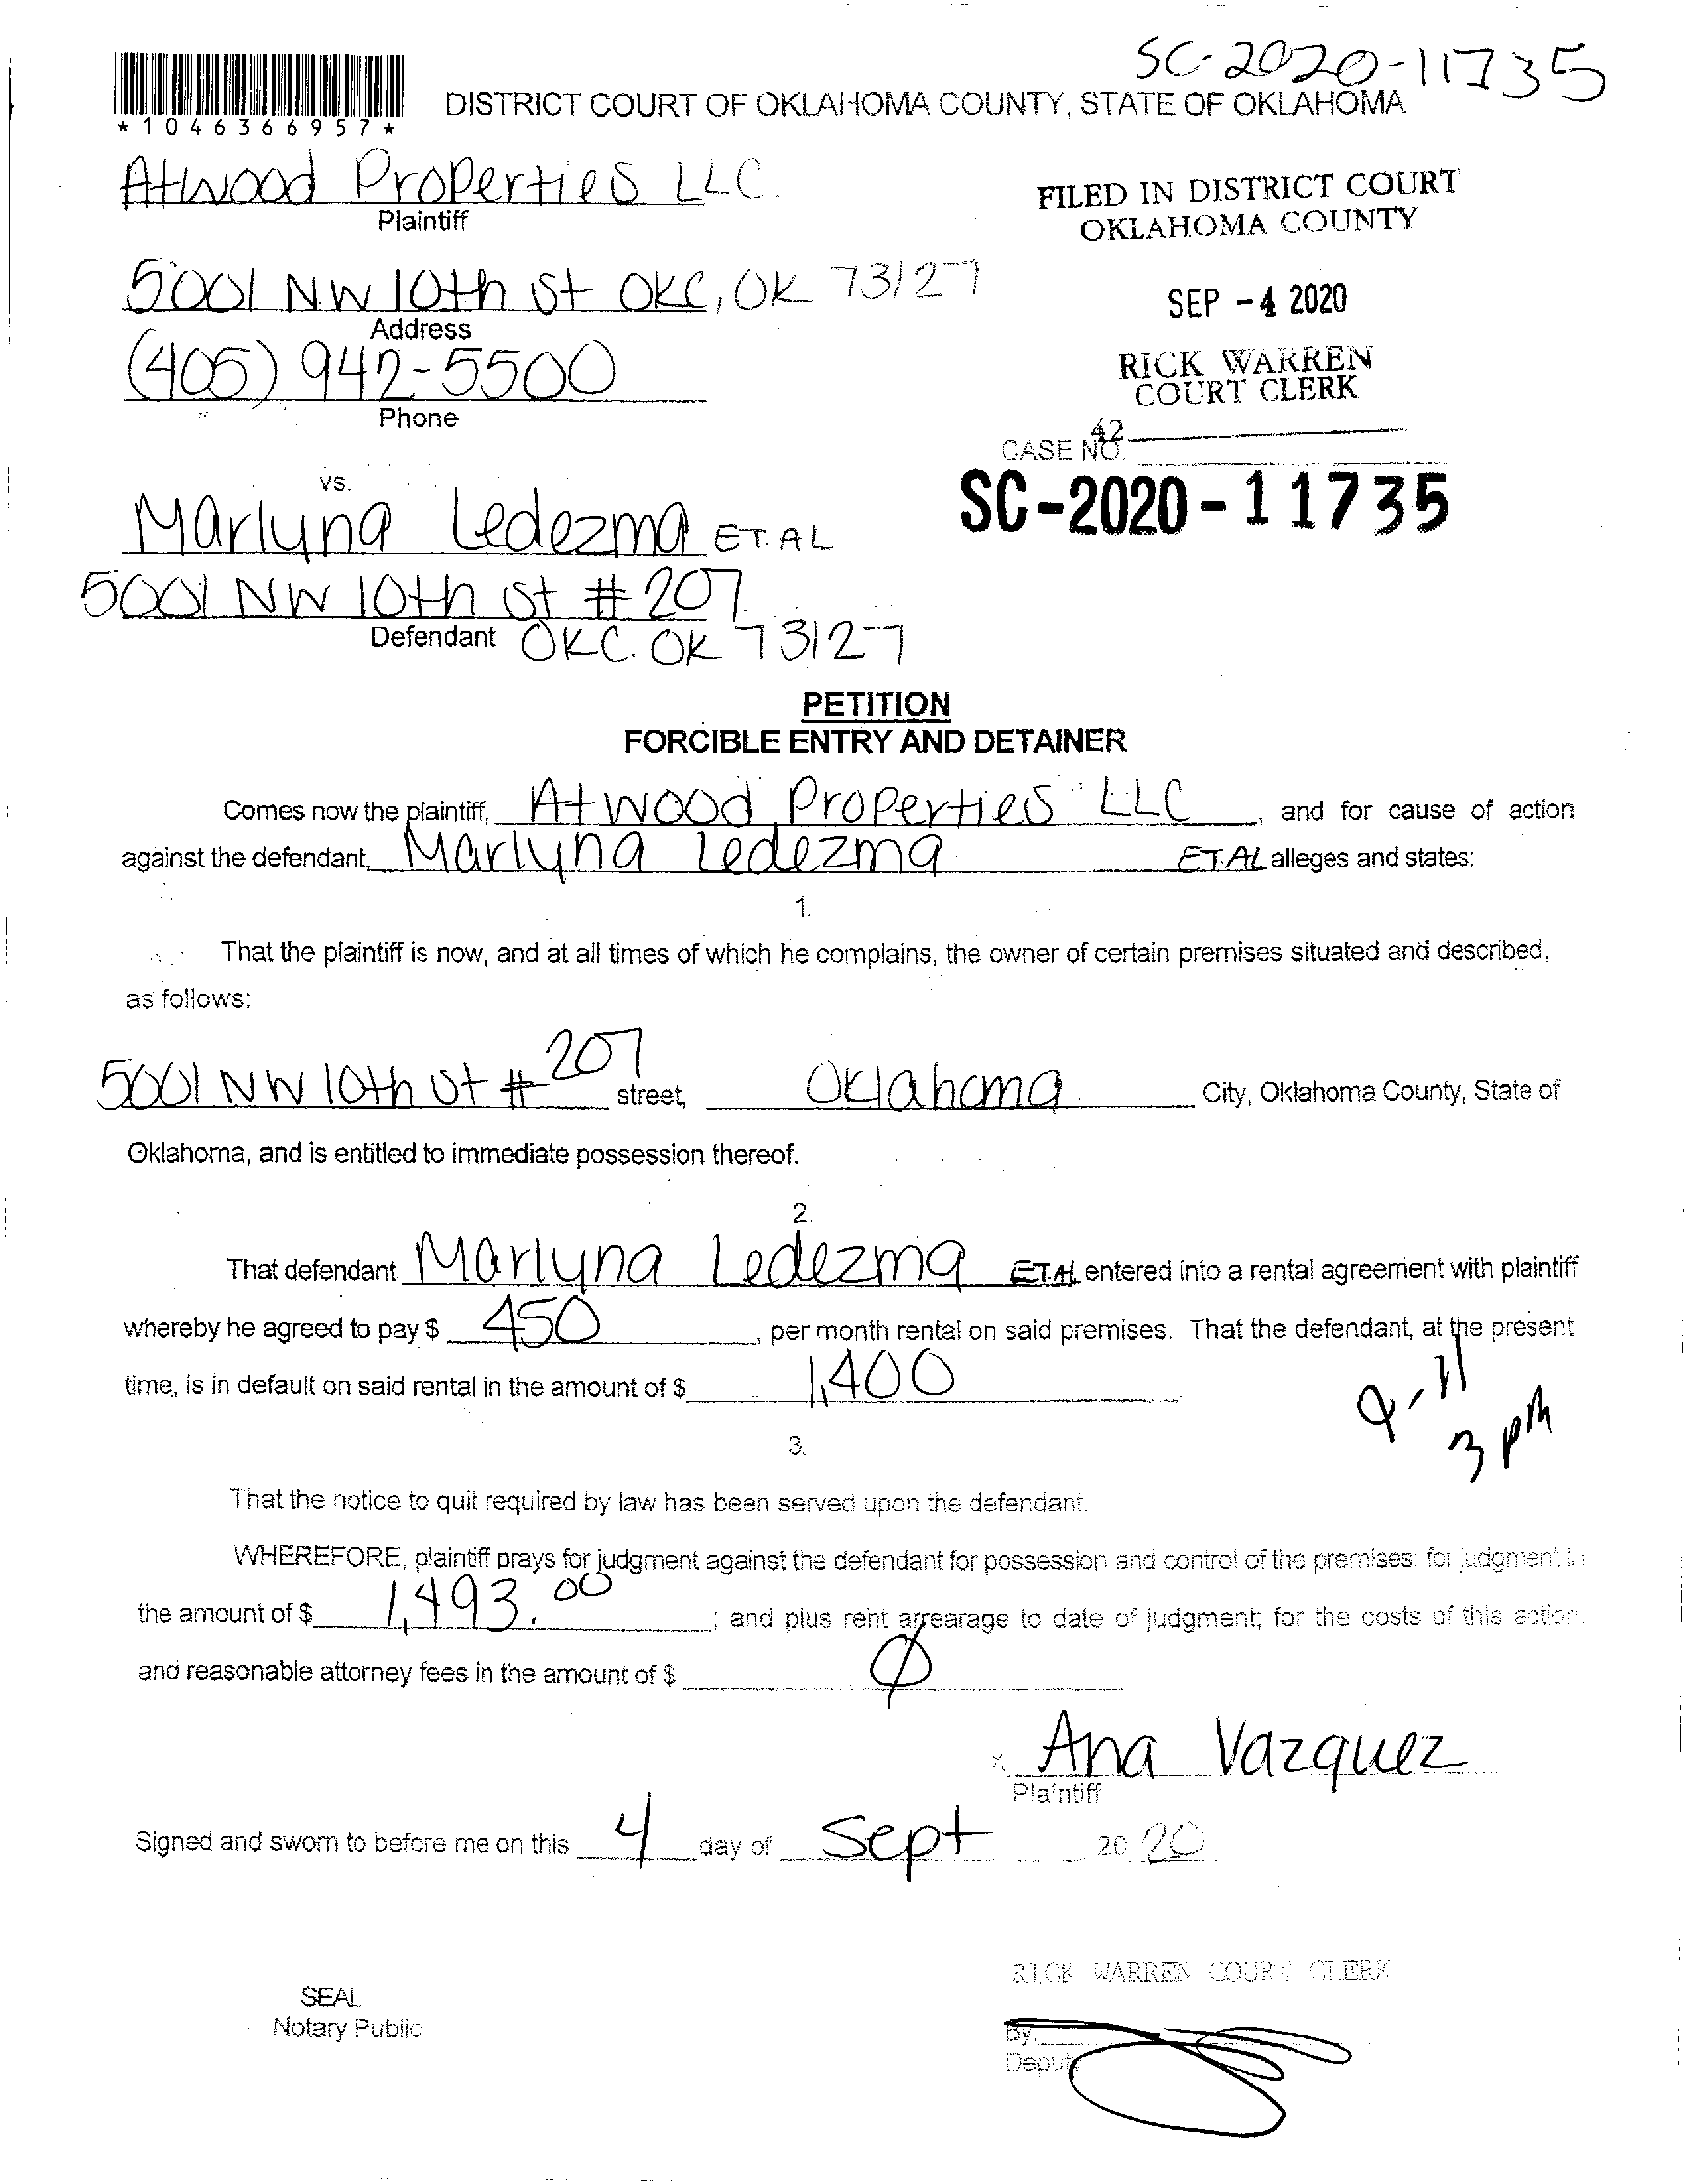 SC-2020-11735
*1046366957*
DISTRICT COURT OF OKLAHOMA COUNTY, STATE OF OKLAHOMA
Atwood Properties LLC.
Plaintiff
FILED IN DISTRICT COURT
OKLAHOMA COUNTY
5001 NW 10th St OKC, OK 73127
Address
SEP -4 2020
(405) 942-5500
Phone
RICK WARREN
COURT CLERK
42
CASE NO.
SC-2020-11735
vs.
Marlyna Ledezma ET. AL
5001 NW 10th St # 207
Defendant OKC. OK 73127
PETITION
FORCIBLE ENTRY AND DETAINER
Comes now the plaintiff, Atwood Properties LLC, and for cause of action
against the defendant, Marlyna Ledezma ET.AL alleges and states:
1.
That the plaintiff is now, and at all times of which he complains, the owner of certain premises situated and described,
as follows:
5001 NW 10th St # 207 street, Oklahoma City, Oklahoma County, State of
Oklahoma, and is entitled to immediate possession thereof.
2.
That defendant Marlyna Ledezma ET.AL entered into a rental agreement with plaintiff
whereby he agreed to pay $ 450, per month rental on said premises. That the defendant, at the present
time, is in default on said rental in the amount of $ 1,400
9-11
3 pm
3.
That the notice to quit required by law has been served upon the defendant.
WHEREFORE, plaintiff prays for judgment against the defendant for possession and control of the premises: for judgment in
the amount of $ 1,493.00; and plus rent arrearage to date of judgment; for the costs of this action
and reasonable attorney fees in the amount of $ Ø
x Ana Vazquez
Plaintiff
Signed and sworn to before me on this 4 day of Sept 2020
RICK WARREN COURT CLERK
SEAL
Notary Public
By
Deputy